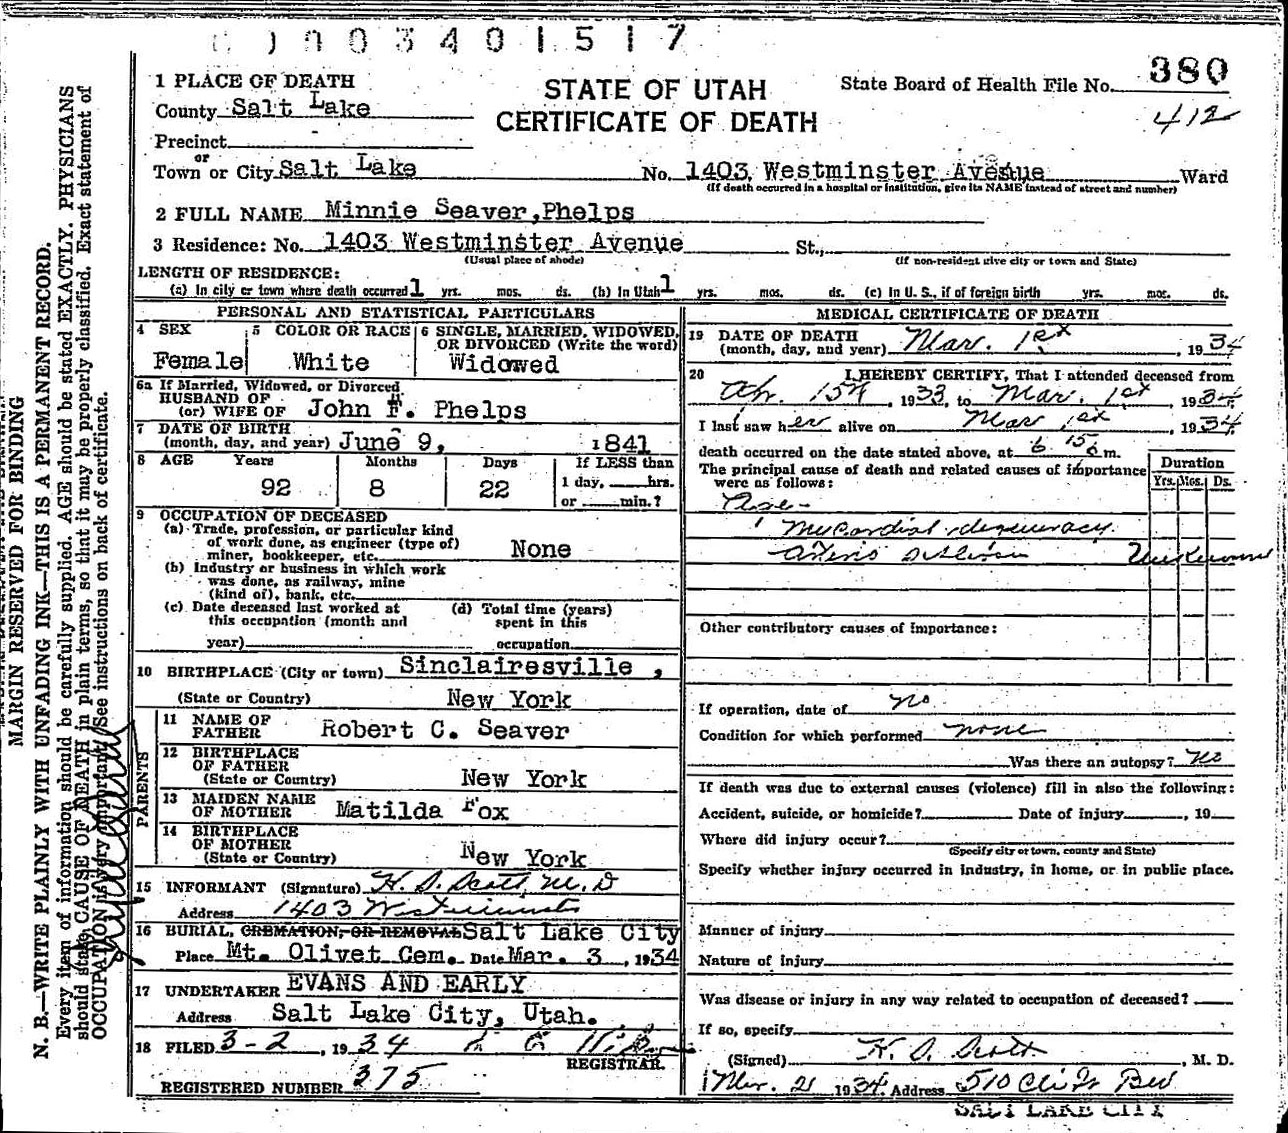 0 0 0 3 4 0 1 5 1 7
MARGIN RESERVED FOR BINDING
N. B.—WRITE PLAINLY WITH UNFADING INK—THIS IS A PERMANENT RECORD.
Every item of information should be carefully supplied. AGE should be stated EXACTLY. PHYSICIANS
should state CAUSE OF DEATH in plain terms, so that it may be properly classified. Exact statement of
OCCUPATION is very important. (See instructions on back of certificate.
STATE OF UTAH
CERTIFICATE OF DEATH
State Board of Health File No. 380
412
1 PLACE OF DEATH
County Salt Lake
Precinct
or
Town or City Salt Lake No. 1403 Westminster Avenue Ward
(If death occurred in a hospital or institution, give its NAME instead of street and number)
2 FULL NAME Minnie Seaver,Phelps
3 Residence: No. 1403 Westminster Avenue St.,
(Usual place of abode) (If non-resident give city or town and State)
LENGTH OF RESIDENCE:
(a) In city or town where death occurred 1 yrs. mos. ds. (b) In Utah 1 yrs. mos. ds. (c) In U. S., if of foreign birth yrs. mos. ds.
PERSONAL AND STATISTICAL PARTICULARS
4 SEX Female
5 COLOR OR RACE White
6 SINGLE, MARRIED, WIDOWED, OR DIVORCED (Write the word) Widowed
6a If Married, Widowed, or Divorced
HUSBAND OF
(or) WIFE OF John F. Phelps
7 DATE OF BIRTH
(month, day, and year) June 9, 1841
8 AGE Years Months Days If LESS than
92 8 22 1 day, hrs.
or min.?
9 OCCUPATION OF DECEASED
(a) Trade, profession, or particular kind
of work done, as engineer (type of)
miner, bookkeeper, etc. None
(b) Industry or business in which work
was done, as railway, mine
(kind of), bank, etc.
(c) Date deceased last worked at
this occupation (month and
year)
(d) Total time (years)
spent in this
occupation
10 BIRTHPLACE (City or town) Sinclairesville ,
(State or Country) New York
PARENTS
11 NAME OF
FATHER Robert C. Seaver
12 BIRTHPLACE
OF FATHER
(State or Country) New York
13 MAIDEN NAME
OF MOTHER Matilda Fox
14 BIRTHPLACE
OF MOTHER
(State or Country) New York
15 INFORMANT (Signature) H. D. Scott, M. D
Address 1403 Westminster
16 BURIAL, CREMATION, OR REMOVAL Salt Lake City
Place Mt. Olivet Cem. Date Mar. 3 , 1934
17 UNDERTAKER EVANS AND EARLY
Address Salt Lake City, Utah.
18 FILED 3-2 , 1934
REGISTRAR.
REGISTERED NUMBER 375
MEDICAL CERTIFICATE OF DEATH
19 DATE OF DEATH
(month, day, and year) Mar. 1st , 1934
20 I HEREBY CERTIFY, That I attended deceased from
Apr. 15th , 1933, to Mar. 1st , 1934
I last saw her alive on Mar 1st , 1934
death occurred on the date stated above, at 6 15 m.
The principal cause of death and related causes of importance
were as follows:
Duration
Yrs. Mos. Ds.
Age-
Myocardial degeneracy
Arterio Sclerosis Unknown
Other contributory causes of importance:
If operation, date of no
Condition for which performed none
Was there an autopsy? no
If death was due to external causes (violence) fill in also the following:
Accident, suicide, or homicide? Date of injury , 19
Where did injury occur?
(Specify city or town, county and State)
Specify whether injury occurred in industry, in home, or in public place.
Manner of injury
Nature of injury
Was disease or injury in any way related to occupation of deceased?
If so, specify
(Signed) H. D. Scott , M. D.
Mar. 2 1934. Address 510 Clift Bld
SALT LAKE CITY